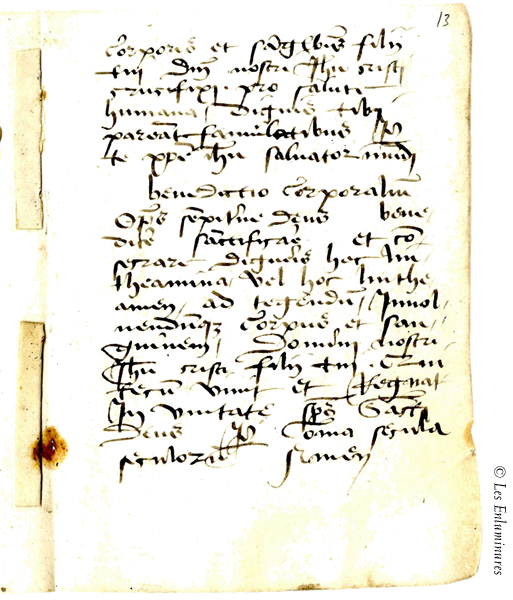 13
corporis et sãgwis filij
tui dm̃ nostri Jhu cristi
crucifixi pro salute
humana dignis tibi
pareãt famulatibus P
te ppe ihu saluator mũdi
benedictio corporaliũ
Ops sempiterne deus bene
dice sãctificare et cõ
secrare digneris hec lin
theamina vel hoc linthe
amen ad tegendũ Jnuol
uendũqz corpus et san
guinem Domini nostri
Jhu cristi filij tui Qui
tecũ viuit et Regnat
Jn vnitate sps Sãcti
Deus P omia secula
seculorũ Amen
© Les Enluminures